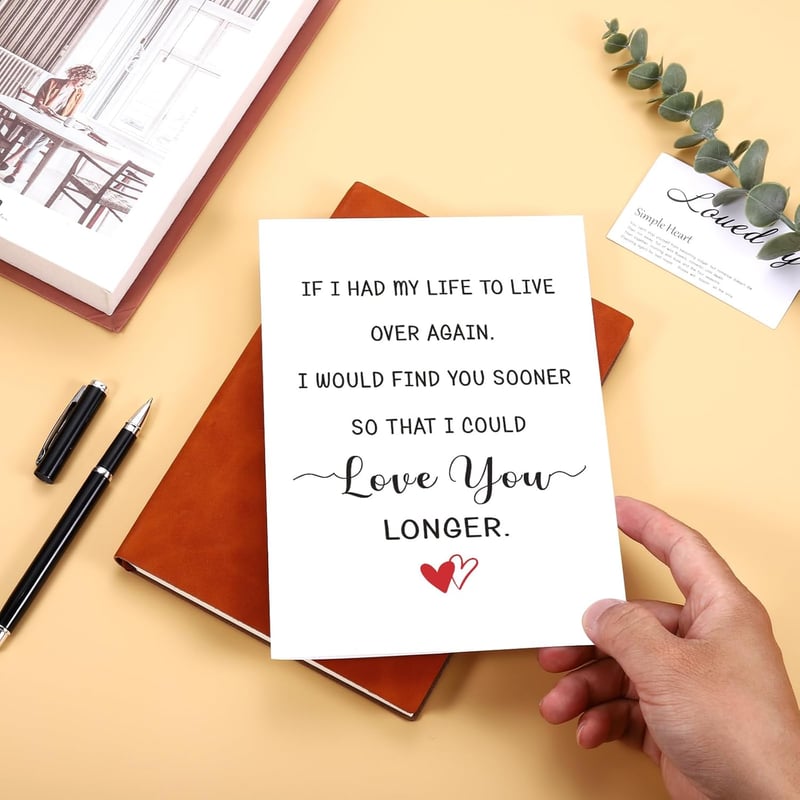 IF I HAD MY LIFE TO LIVE
OVER AGAIN.
I WOULD FIND YOU SOONER
SO THAT I COULD
Love You
LONGER.
Simple Heart